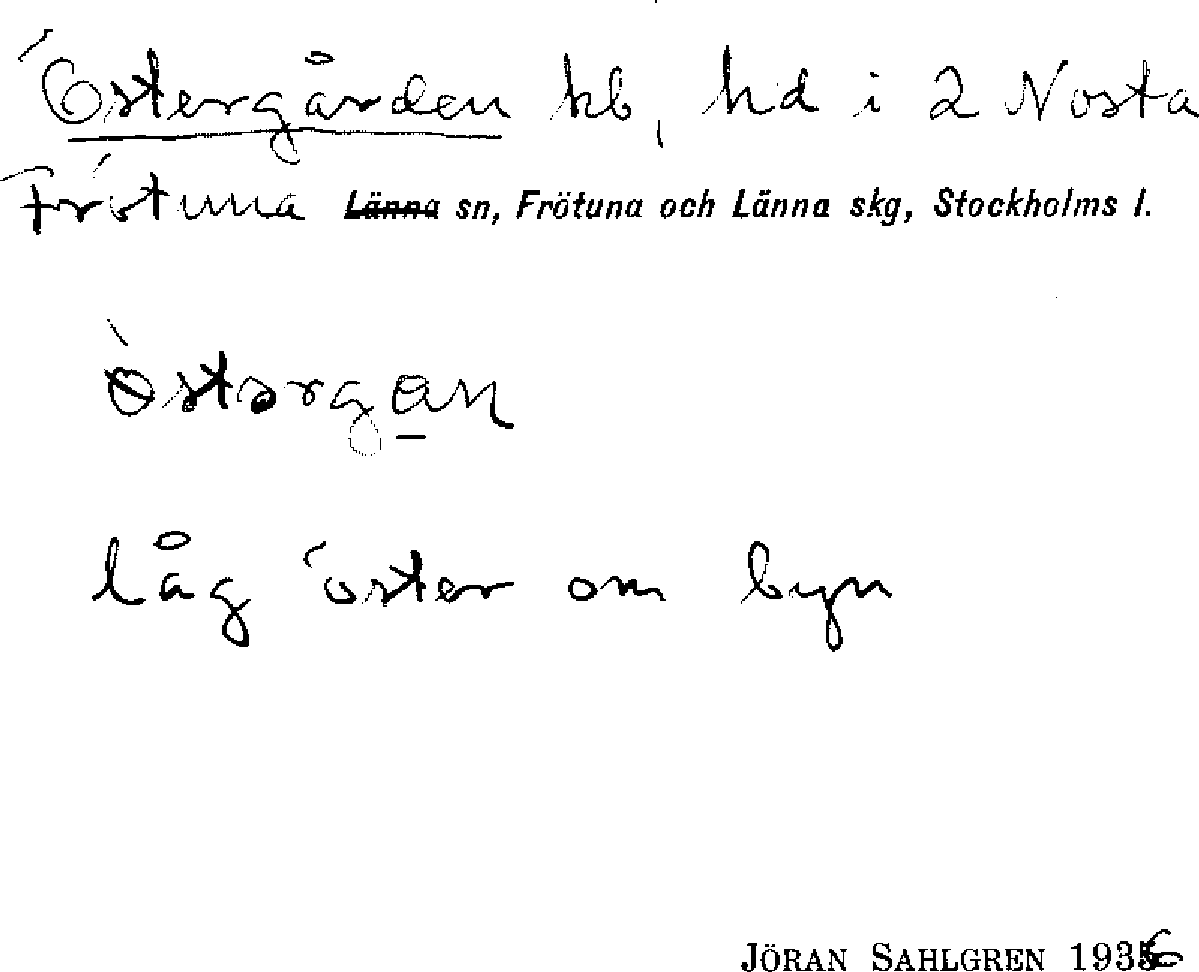 Östergården hb, hd i 2 Nosta
Frötuna Länna sn, Frötuna och Länna skg, Stockholms l.
östərgαn
låg öster om byn
JÖRAN SAHLGREN 1936